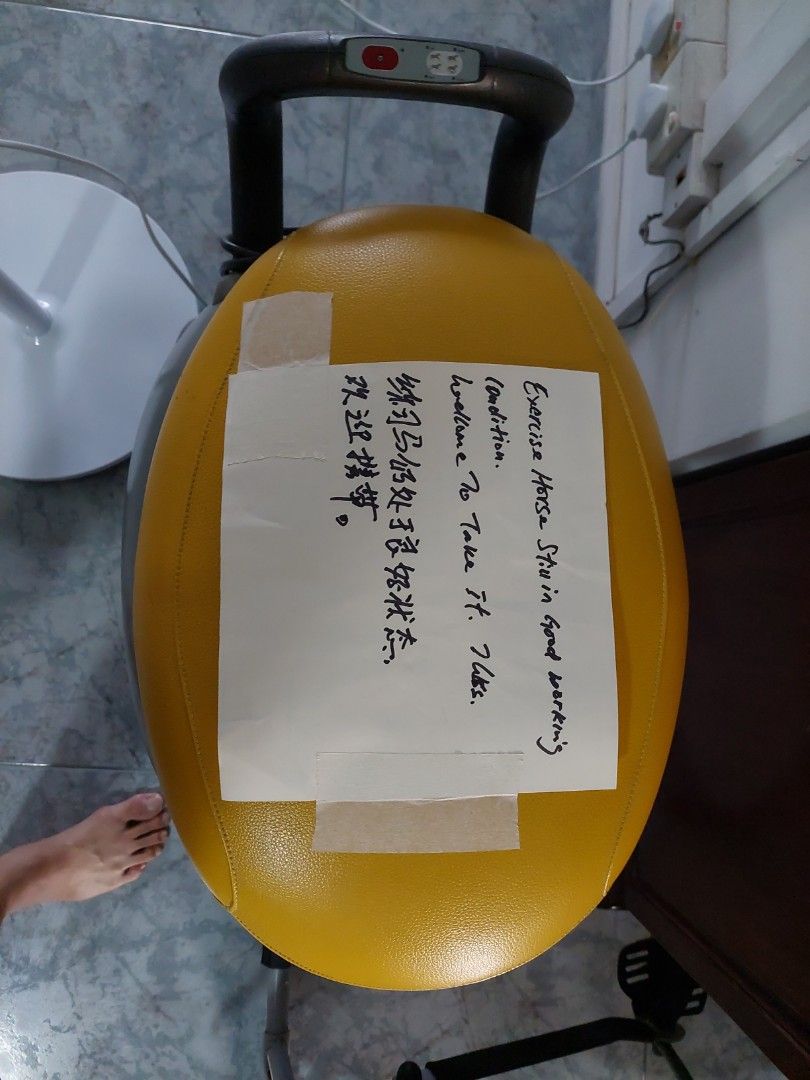 Exercise Horse Still in Good working
Condition.
Welcome To Take it. Thks.
练习马仍处于良好状态,
欢迎携带。